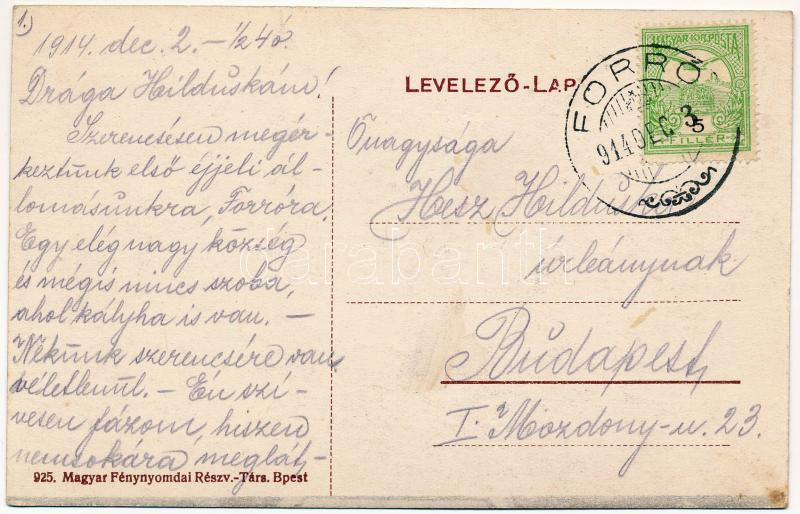 1.)
1914. dec. 2. – ½4ó.
Drága Hilduskám!
Szerencsésen megér-
keztünk első éjjeli ál-
lomásunkra, Forróra.
Egy elég nagy község
és mégis nincs szoba,
ahol kályha is van. –
Nekünk szerencsére van
véletlenül. – Én szí-
vesen fázom, hiszen
nemsokára meglát-
925. Magyar Fénynyomdai Részv.-Társ. Bpest
LEVELEZŐ-LAP
MAGYAR KIR. POSTA
5
FILLÉR
FORRÓ
914 DEC 3
Őnagysága
Hesz Hilduska
úrleánynak
Budapest,
I. Mozdony-u. 23.
darabanth